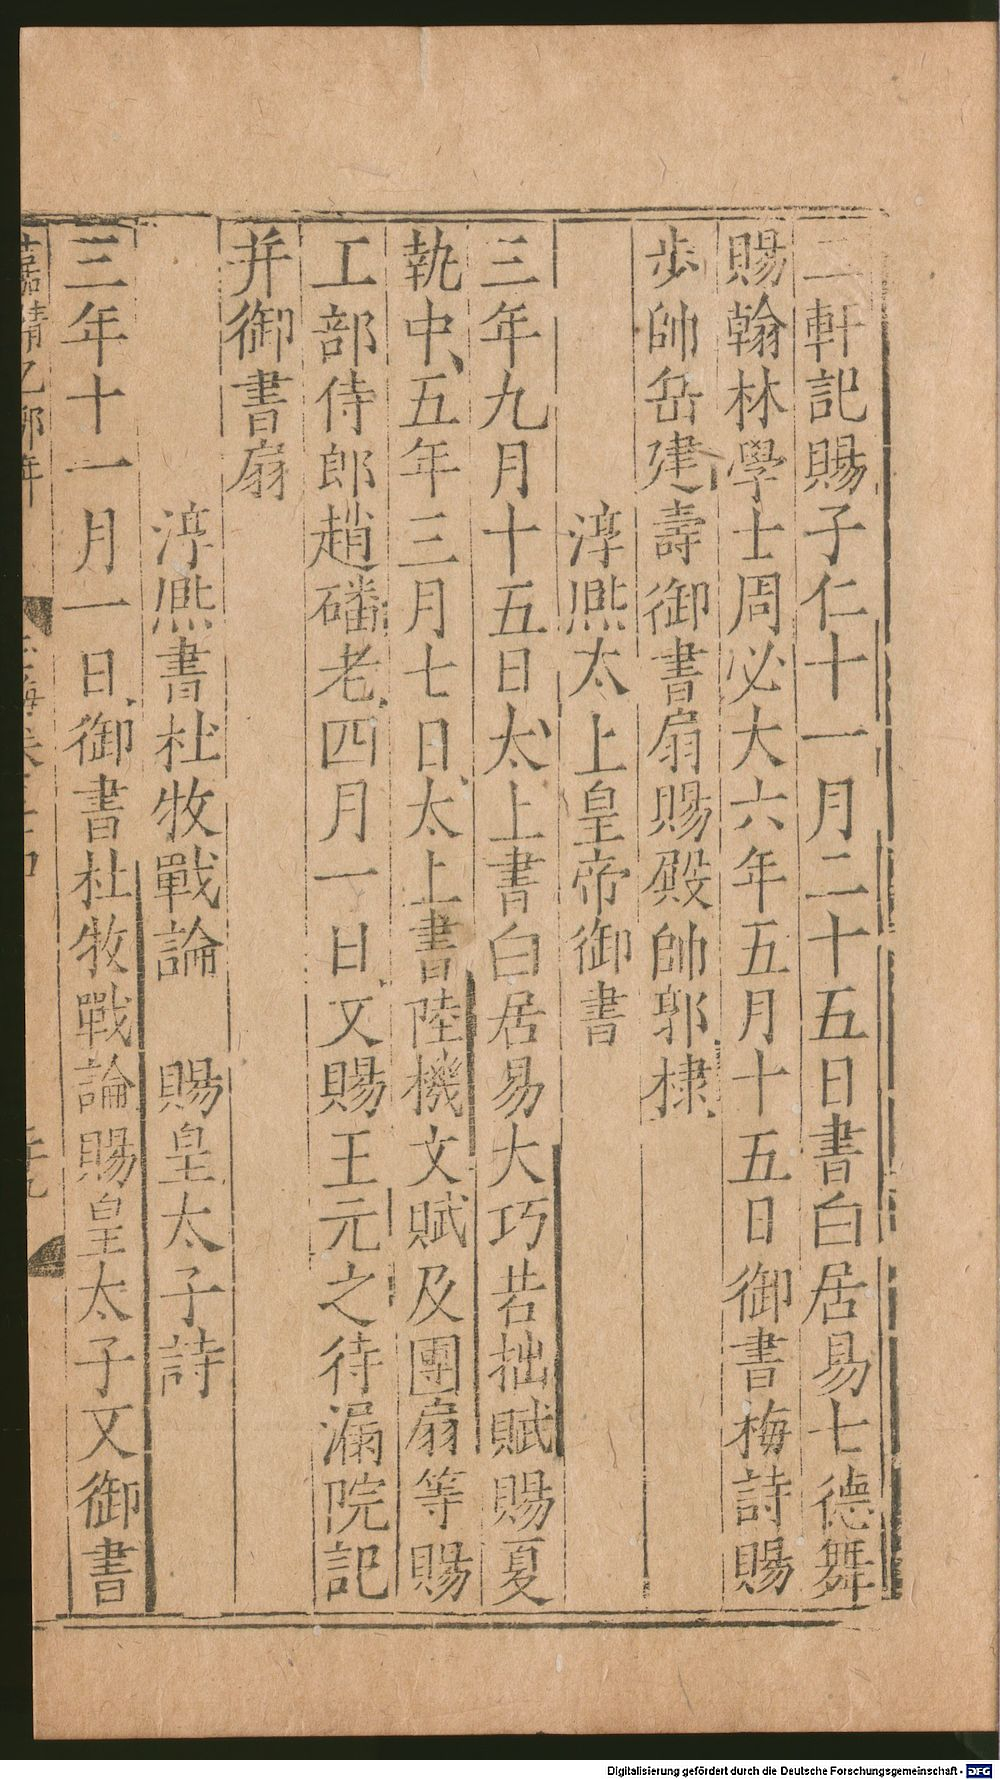 二軒記賜子仁十一月二十五日書白居易七德舞
賜翰林學士周必大六年五月十五日御書梅詩賜
步帥岳建壽御書扇賜殿帥郭棣
淳熙太上皇帝御書
三年九月十五日太上書白居易大巧若拙賦賜夏
執中五年三月七日太上書陸機文賦及團扇等賜
工部侍郎趙磻老四月一日又賜王元之待漏院記
并御書扇
淳熙書杜牧戰論 賜皇太子詩
三年十一月一日御書杜牧戰論賜皇太子又御書
嘉靖乙卯年
Digitalisierung gefördert durch die Deutsche Forschungsgemeinschaft - DFG